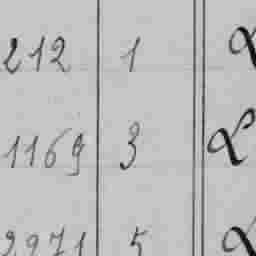 212 1
1169 3 L
2971 5